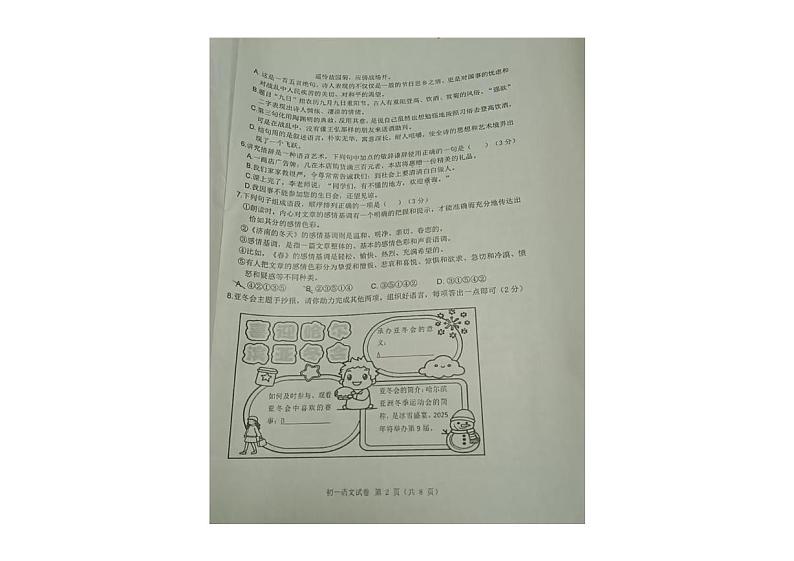 遥怜故园菊,应傍战场开。
A.这是一首五言绝句,诗人表现的不仅仅是一般的节日思乡之情,更是对国事的忧虑和
对战乱中人民疾苦的关切、对和平的渴望。
B.题目“九日”指农历九月九日重阳节,古人有重阳登高、饮酒、赏菊的风俗,“强欲”
二字表现出诗人惆怅、凄凉的情绪。
C.第三句化用陶渊明的典故,反用其意,是说自己虽然也想勉强地按照习俗去登高饮酒,
可是在战乱中,没有像王弘那样的朋友来送酒助兴。
D.结句用的是叙述语言,朴实无华,寓意深长,耐人咀嚼,使全诗的思想和艺术境界出
现了一个飞跃。
6.讲究措辞是一种语言艺术,下列句中加点的敬辞谦辞使用正确的一项是( )(3分)
A.一商店广告牌:凡在本店购货满三百元者,本店将惠赠一份精美的礼品。
B.我们家家教很严,令尊常常告诫我们:到社会上要清清白白做人。
C.课上完了,李老师说:“同学们,有不懂的地方,欢迎垂询。”
D.我因事不能参加您的生日会,还望见谅。
7.下列句子组成语段,顺序排列正确的一项是( )(3分)
①朗读时,内心对文章的感情基调有一个明确的把握和提示,才能准确而充分地传达出
恰如其分的感情色彩。
②《济南的冬天》的感情基调则是温和、观净、亲切、眷恋的。
③感情基调,是指一篇文章整体的、基本的感情色彩和声音语调。
④比如,《春》的感情基调是轻松、愉快、热烈、充满希望的。
⑤有人把文章的感情色彩分为挚爱和憎恨、悲哀和喜悦、惊惧和欲求、急切和冷漠、愤
怒和疑惑等不同种类。
A.④②①③⑤ B.②③⑤①④ C.③⑤①④② D.③①⑤④②
8.亚冬会主题手抄报,请你助力完成其他两项,组织好语言,每项答出一点即可(2分)
喜迎哈尔
滨亚冬会
承办亚冬会的意
义:
A
如何及时参与、观看
亚冬会中喜欢的赛
事:B
亚冬会的简介:哈尔滨
亚洲冬季运动会的简
称,是冰雪盛宴。2025
年将举办第9届。
初一语文试卷 第 2 页(共 8 页)